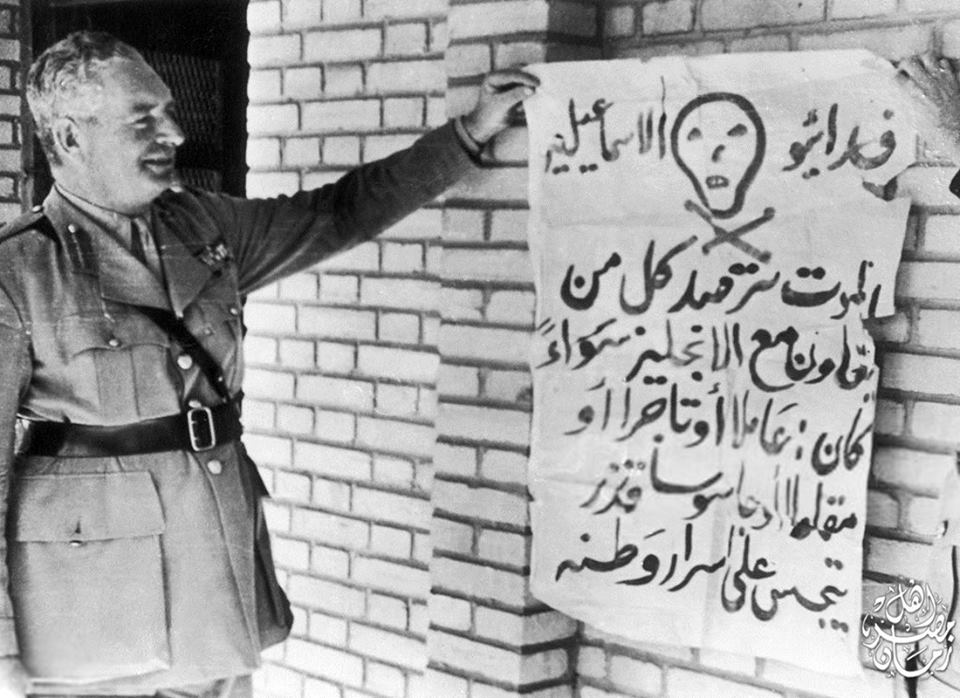 فدائيو الاسماعيلية
الموت سترصد كل من
يتعاون مع الانجليز سواءً
كان : عاملا أو تاجرا او
مقاولا أو جاسوسا قذر
يتجسس على أسرار وطنه
أهل مصر زمان